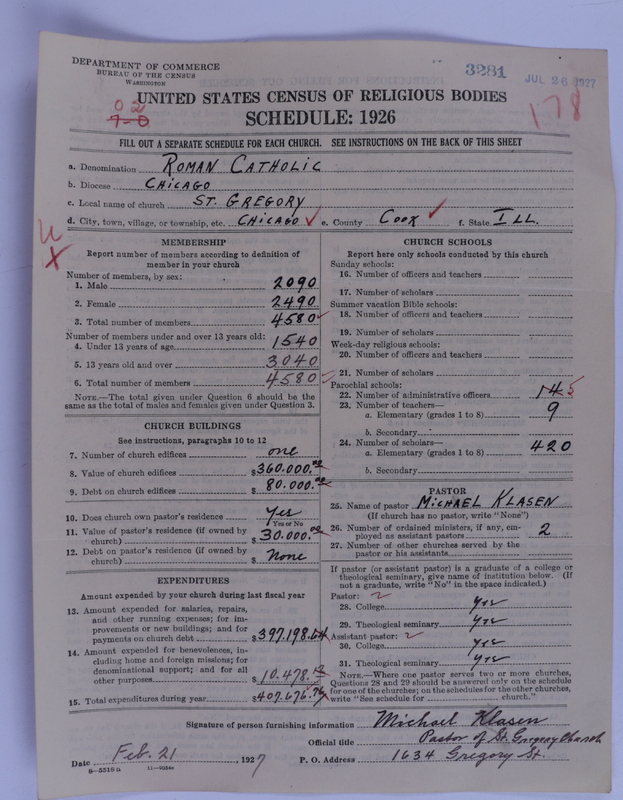 DEPARTMENT OF COMMERCE
BUREAU OF THE CENSUS
WASHINGTON
3281
JUL 26 1927
178
0 2
7-0
UNITED STATES CENSUS OF RELIGIOUS BODIES
SCHEDULE: 1926
FILL OUT A SEPARATE SCHEDULE FOR EACH CHURCH. SEE INSTRUCTIONS ON THE BACK OF THIS SHEET
a. Denomination ROMAN CATHOLIC
b. Diocese CHICAGO
c. Local name of church ST. GREGORY
d. City, town, village, or township, etc. CHICAGO e. County COOK f. State ILL.
MEMBERSHIP
Report number of members according to definition of
member in your church
Number of members, by sex:
1. Male 2090
2. Female 2490
3. Total number of members 4580
Number of members under and over 13 years old:
4. Under 13 years of age 1540
5. 13 years old and over 3040
6. Total number of members 4580
NOTE.—The total given under Question 6 should be
same as the total of males and females given under Question 3.
CHURCH BUILDINGS
See instructions, paragraphs 10 to 12
7. Number of church edifices one
8. Value of church edifices $360.000.00
9. Debt on church edifices $80.000.00
10. Does church own pastor's residence Yes
Yes or No
11. Value of pastor's residence (if owned by
church) $30.000.00
12. Debt on pastor's residence (if owned by
church) $ None
EXPENDITURES
Amount expended by your church during last fiscal year
13. Amount expended for salaries, repairs,
and other running expenses; for im-
provements or new buildings; and for
payments on church debt $397.198.64
14. Amount expended for benevolences, in-
cluding home and foreign missions; for
denominational support; and for all
other purposes $10.478.
15. Total expenditures during year $407.676.
CHURCH SCHOOLS
Report here only schools conducted by this church
Sunday schools:
16. Number of officers and teachers
17. Number of scholars
Summer vacation Bible schools:
18. Number of officers and teachers
19. Number of scholars
Week-day religious schools:
20. Number of officers and teachers
21. Number of scholars
Parochial schools:
22. Number of administrative officers 14 5
23. Number of teachers—
a. Elementary (grades 1 to 8) 9
b. Secondary
24. Number of scholars—
a. Elementary (grades 1 to 8) 420
b. Secondary
PASTOR
25. Name of pastor MICHAEL KLASEN
(If church has no pastor, write "None")
26. Number of ordained ministers, if any, em-
ployed as assistant pastors 2
27. Number of other churches served by the
pastor or his assistants
If pastor (or assistant pastor) is a graduate of a college or
theological seminary, give name of institution below. (If
not a graduate, write "No" in the space indicated.)
Pastor: 2
28. College yes
29. Theological seminary yes
Assistant pastor: 2
30. College yes
31. Theological seminary yes
NOTE.—Where one pastor serves two or more churches,
Questions 28 and 29 should be answered only on the schedule
for one of the churches; on the schedules for the other churches,
write "See schedule for church."
Signature of person furnishing information Michael Klasen
Official title Pastor of St. Gregory Church
Date Feb. 21, 1927 P. O. Address 1634 Gregory St.
8-5518a 11-9254c